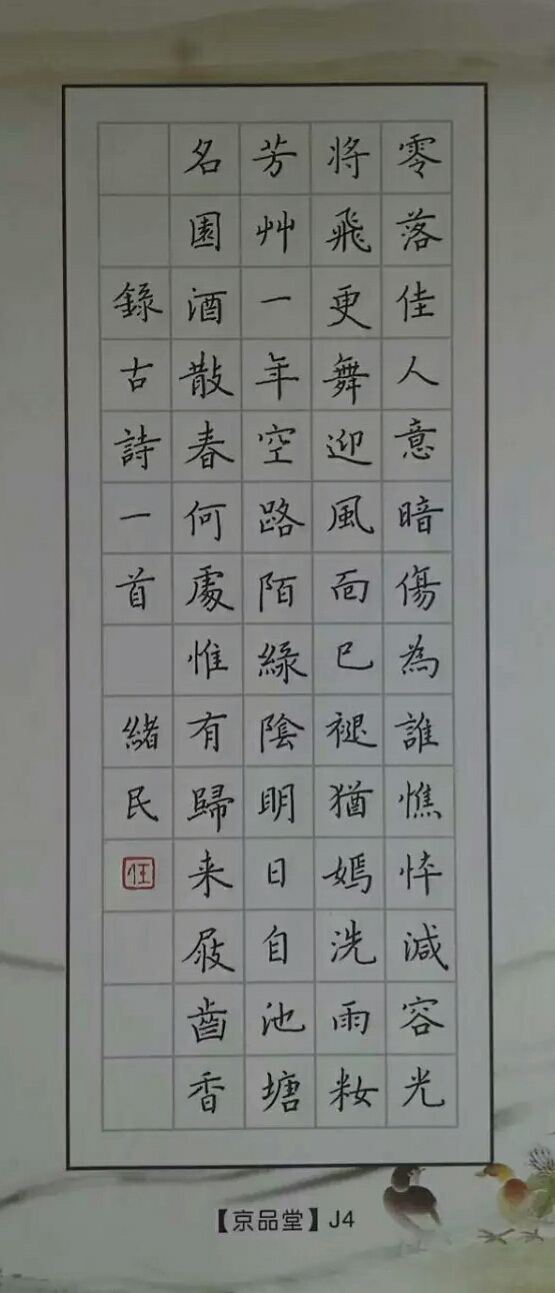 零落佳人意暗傷為誰憔悴減容光
將飛更舞迎風面已褪猶嫣洗雨粧
芳艸一年空路陌綠陰明日自池塘
名園酒散春何處惟有歸来屐齒香
錄古詩一首 緒民
【京品堂】J4